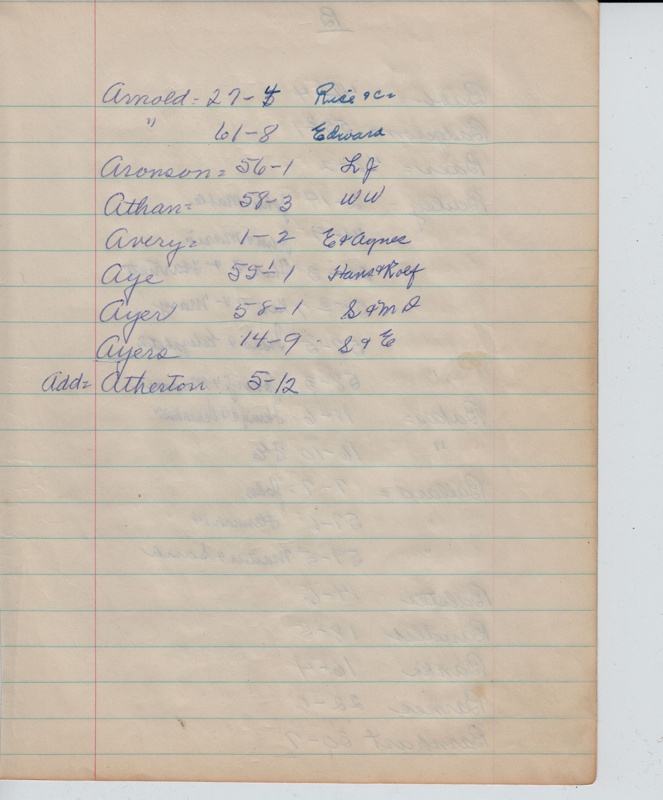 Arnold = 27-5 Rice & Co
" 61-8 Edward
Aronson = 56-1 L J
Athan = 58-3 W W
Avery = 1-2 E & Agnes
Aye 55-1 Hans & Rolf
Ayer 58-1 S & M D
Ayers 14-9 S & E
Add = Atherton 5-12